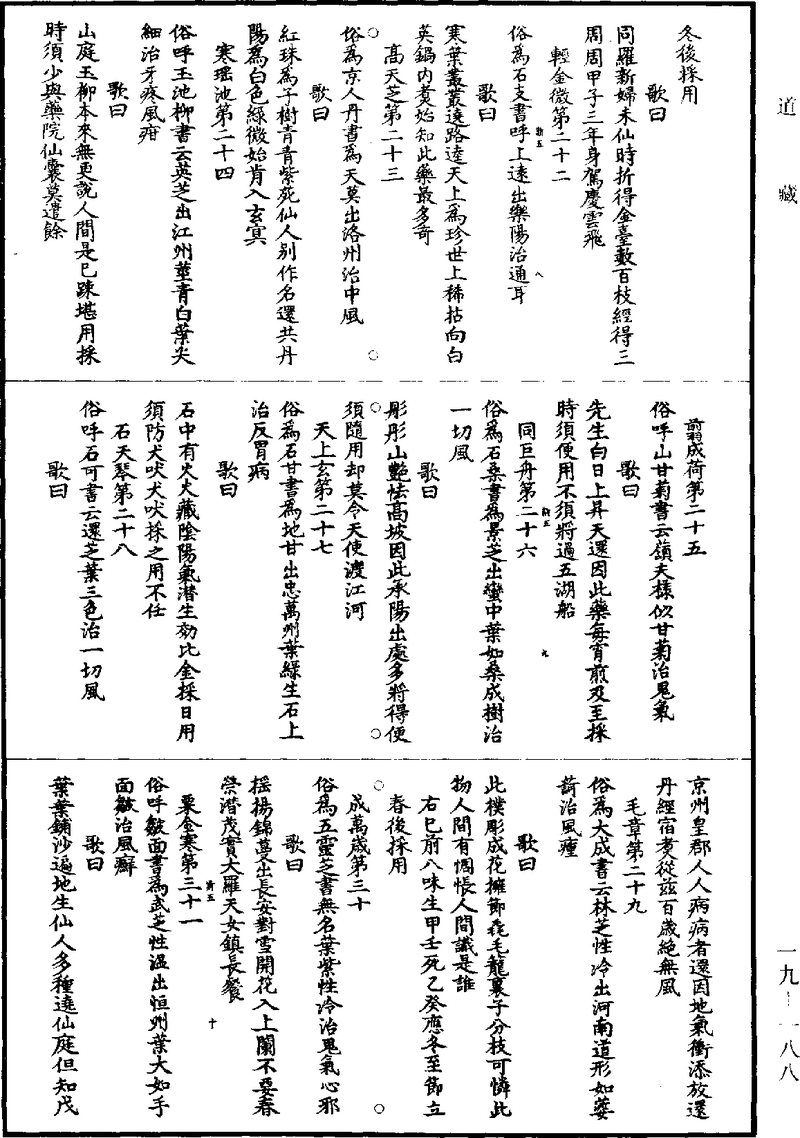 道藏
冬後採用
歌曰
同羅新婦未仙時折得金臺數百枝經得三
周周甲子三年身駕慶雲飛
輕金微第二十二
俗為石支書呼上遠出樂陽治通耳
歌曰
寒葉叢叢遶路達天上為珍世上稀拈向白
英鍋內煑始知此藥最多奇
高天芝第二十三
俗為京人丹書為天莫出洛州治中風
歌曰
紅珠為子樹青青紫苑仙人別作名還共丹
陽為白色綠微始肯入玄冥
寒瑶池第二十四
俗呼玉池柳書云英芝出江州莖青白葉尖
細治牙疼風疳
歌曰
山庭玉柳本來無更說人間是巳踈堪用採
時須少與藥院仙囊莫遣餘
翦成荷第二十五
俗呼山甘菊書云嶺夫樣似甘菊治鬼氣
歌曰
先生白日上昇天還因此藥每宵煎及至採
時須使用不須將過五湖船
同巨舟第二十六
俗為石桑書為景芝出蠻中葉如桑成樹治
一切風
歌曰
彤彤山艷怯高坡因此承陽出處多將得便
須隨用却莫令天使渡江河
天上玄第二十七
俗為石甘書為地甘出忠萬州葉綠生石上
治反胃病
歌曰
石中有火火藏陰陽氣潛生効比金採日用
須防犬吠犬吠採之用不任
石天琴第二十八
俗呼石可書云還芝葉三色治一切風
歌曰
京州皇郡人人病病者還因地氣衝添放還
丹經宿煑從茲百歲絕無風
毛章第二十九
俗為大成書云林芝性冷出河南道形如蔞
蒿治風癉
歌曰
此樸彫成花擁節毳毛籠裏子分枝可憐此
物人間有惆悵人間識是誰
右巳前八味生甲壬死乙癸應冬至節立
春後採用
成萬歲第三十
俗為五靈芝書無名葉紫性冷治鬼氣心邪
歌曰
摇揚錦蔓出長安對雪開花入上闌不要春
榮潛茂實大羅天女鎮長餐
粟金寒第三十一
俗呼皺面書為武芝性溫出恒州葉大如手
面皺治風癬
歌曰
葉葉鋪沙遍地生仙人多種遶仙庭但知戊
一九—一八八